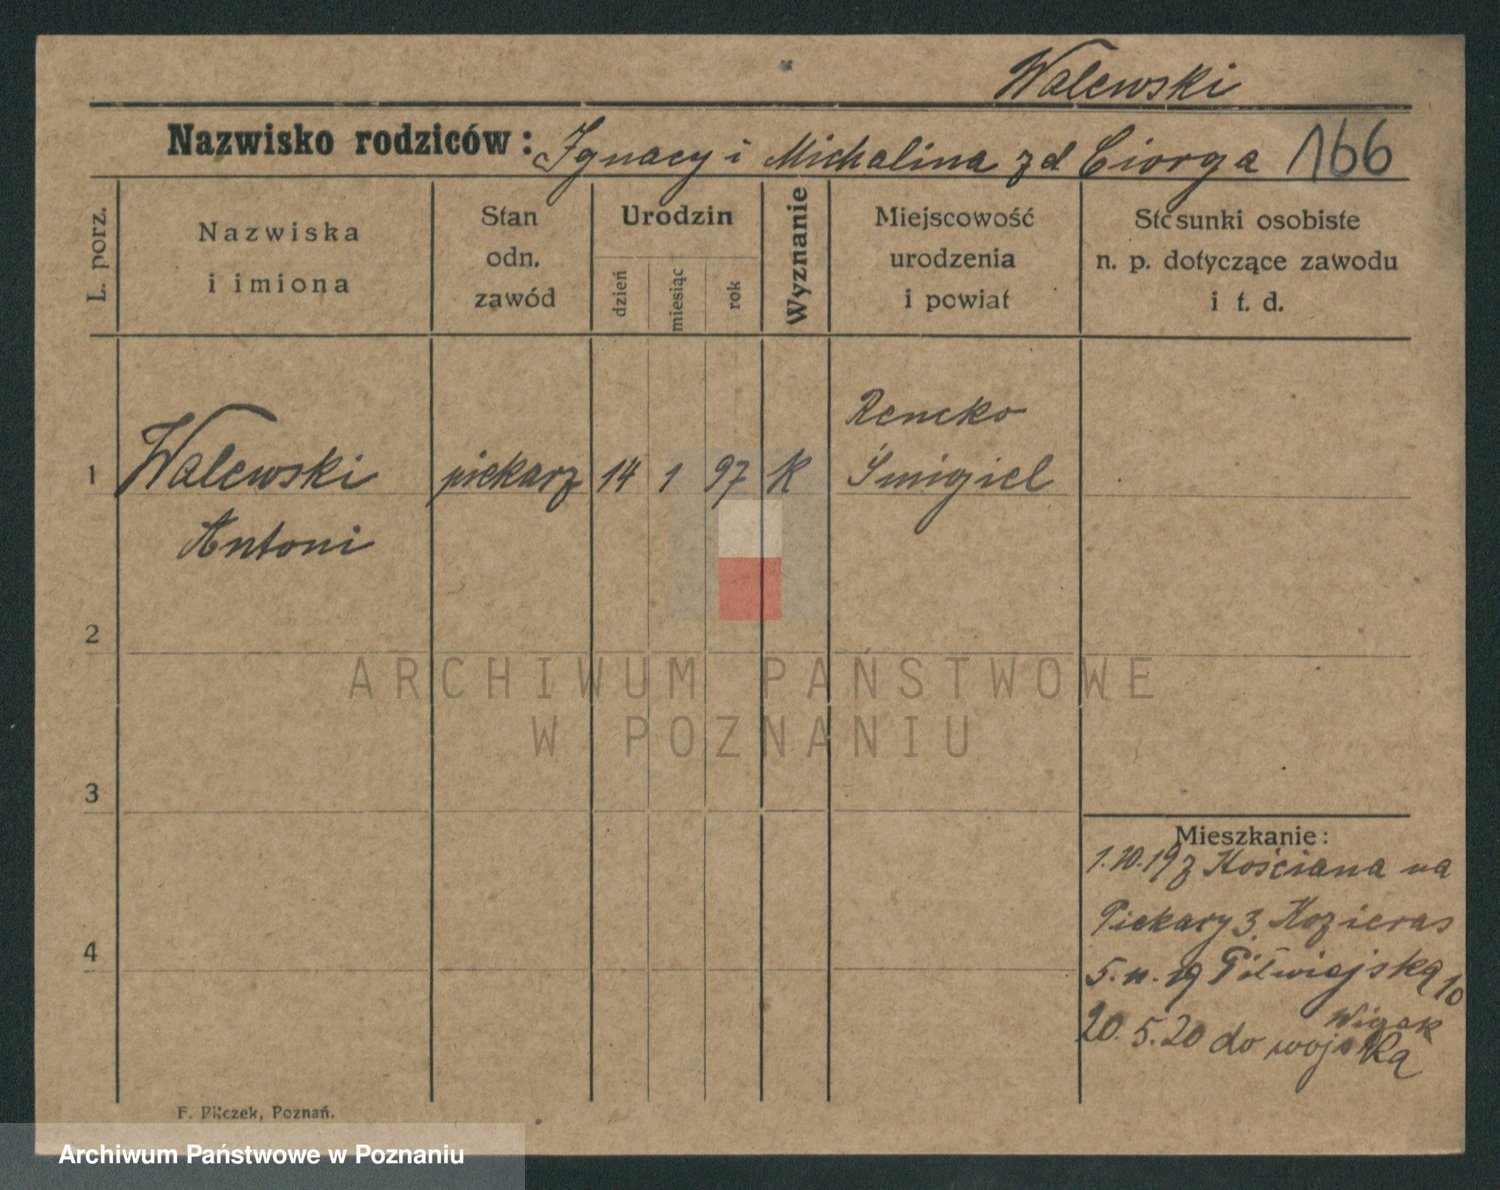 Walewski
Nazwisko rodziców: Ignacy i Michalina zd Ciorga 166
L. porz.
Nazwiska
i imiona
Stan
odn.
zawód
Urodzin
dzień
miesiąc
rok
Wyznanie
Miejscowość
urodzenia
i powiat
Stosunki osobiste
n. p. dotyczące zawodu
i t. d.
Rencko
1 Walewski piekarz 14 1 97 K Śmigiel
Antoni
2
ARCHIWUM PAŃSTWOWE
W POZNANIU
3
Mieszkanie:
1.10.19 z Kościana na
Piekary 3. Kozieras
4
5.11.19 Półwiejską 10
Wigak
20.5.20 do wojska
F. Pilczek, Poznań.
Archiwum Państwowe w Poznaniu